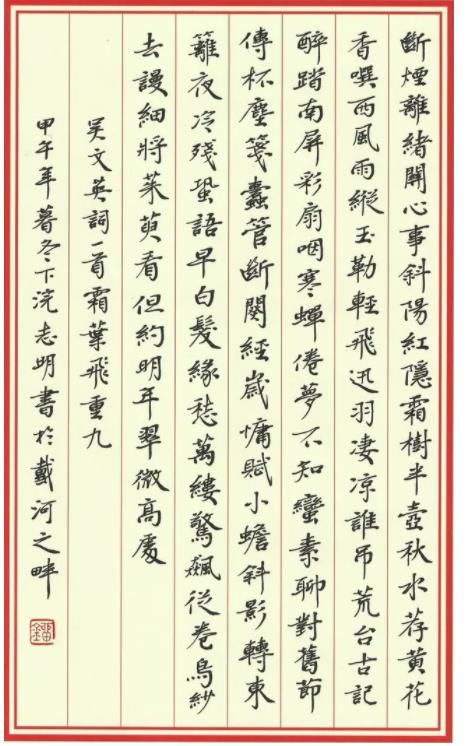 斷煙離緒關心事斜陽紅隱霜樹半壺秋水荐黄花
香噀西風雨縱玉勒輕飛迅羽凄凉誰吊荒台古記
醉踏南屏彩扇咽寒蟬倦夢不知蠻素聊對舊節
傳杯塵箋蠹管斷闋經歲慵賦小蟾斜影轉東
籬夜冷殘蛩語早白髮緣愁萬縷驚飆從卷烏紗
去謾細將茱萸看但約明年翠微高處
吴文英詞一首霜葉飛重九
甲午年暮冬下浣志明書於戴河之畔